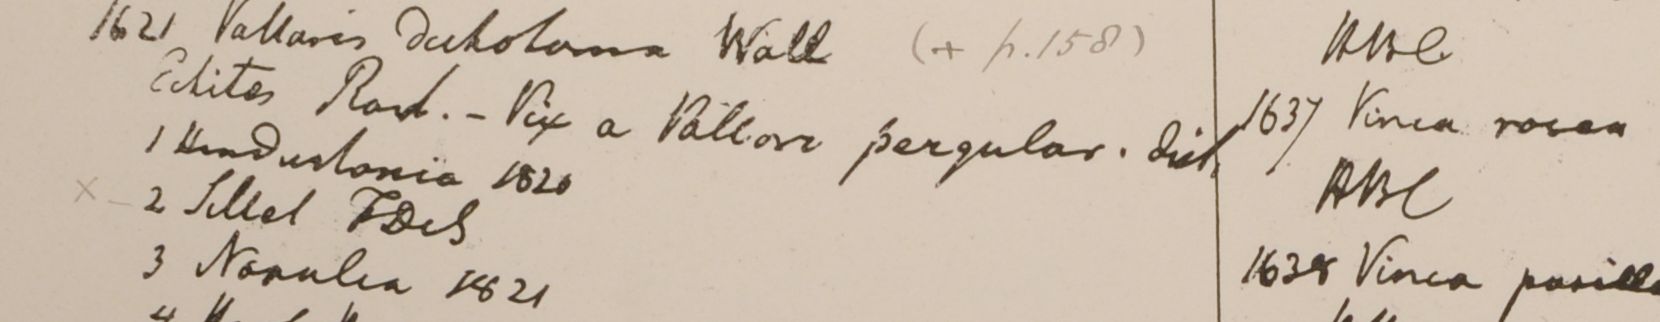 1621 Vallaris dichotoma Wall (+ p.158)
Echites Roxb. - Vix a Vallari pergular. dist.
1 Hindustania 1820
x - 2 Sillet FDeS
3 Noxulia 1821
HBC
1637 Vinca rosea
HBC
1638 Vinca pusilla